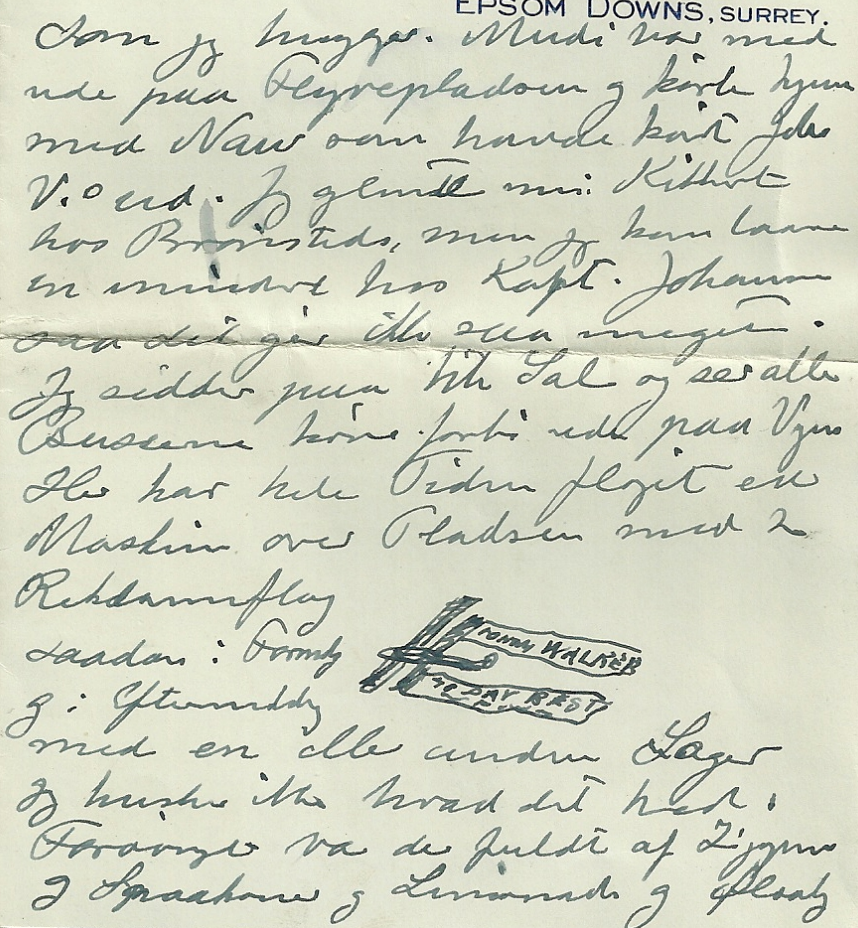 EPSOM DOWNS, SURREY.
Som jeg hugger. Mudi var med
ude paa Flyvepladsen og kørte hjem
med Naur som havde kørt Johs
V. O ud. Jeg glemte min Kikkert
hos Brønsteds, men jeg kan laane
en mindre hos Kapt. Johansen
saa det gør ikke saa meget.
Jeg sidder paa 1ste Sal og ser alle
Busserne køre forbi ude paa Vejen
Her har hele Tiden fløjet en
Maskine over Pladsen med 2
Reklameflag
saadan i Formdg
JOHNNY WALKER
TO DAY BEST
og i Eftermiddg
med en eller anden Lager
Jeg husker ikke hvad det hed.
Forøvrigt var der fuldt af Zigøjnere
og Spaakoner og Limonade og